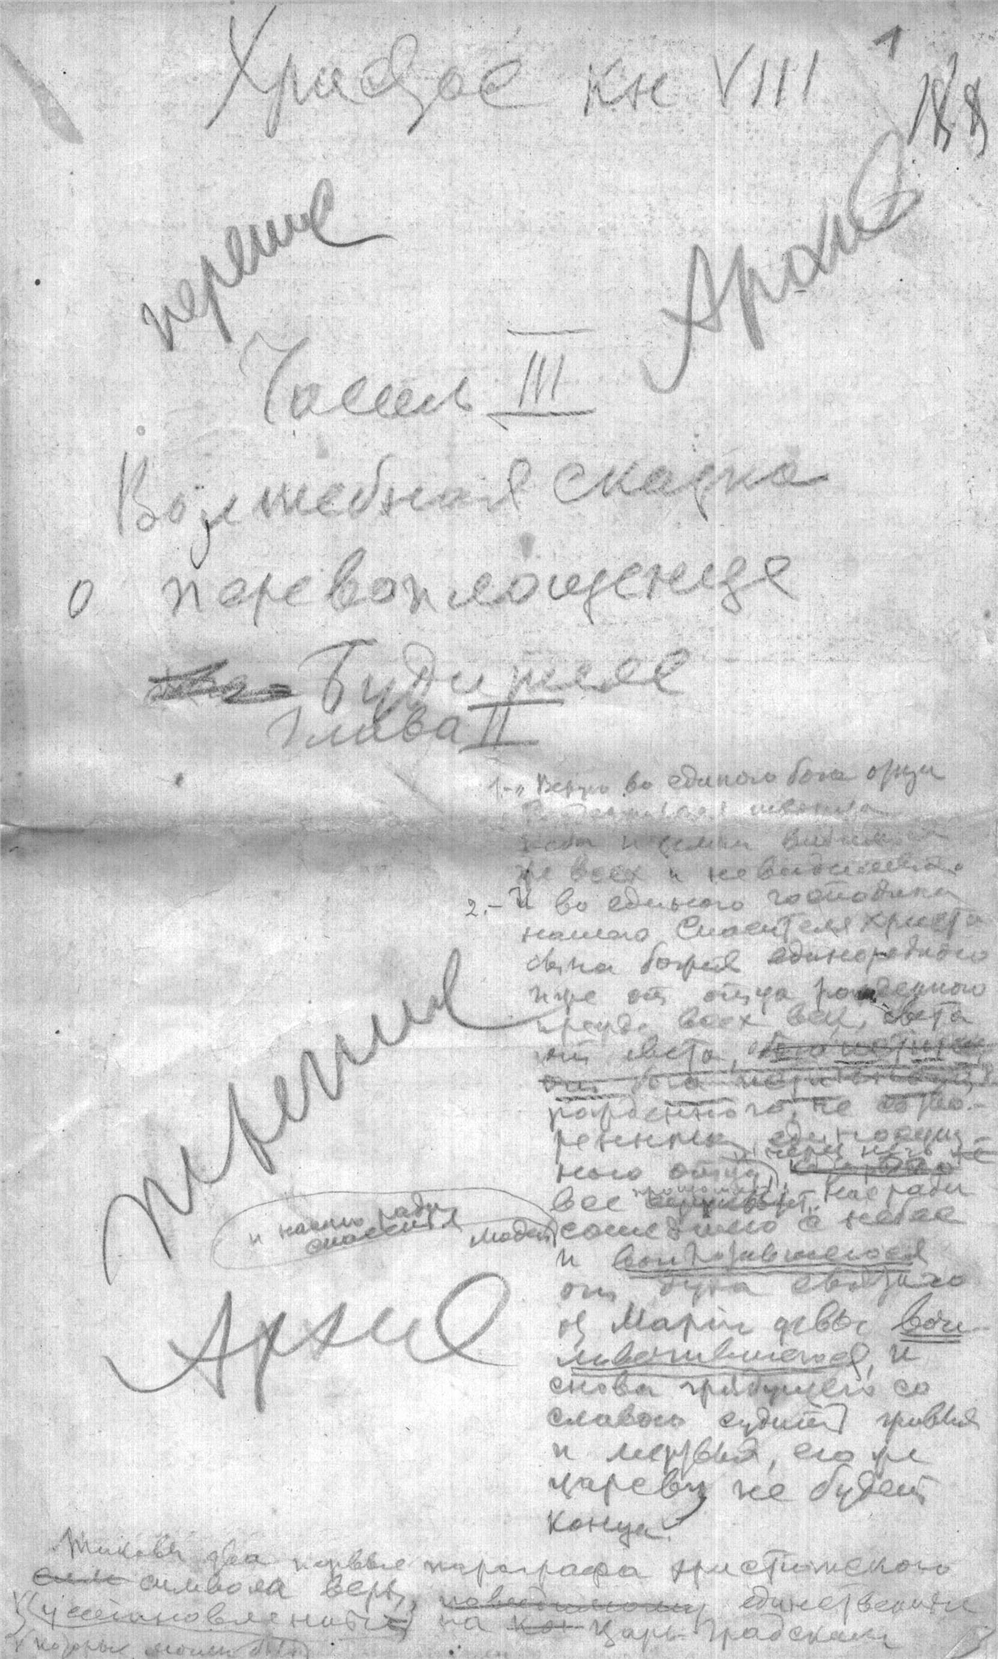 Христос кн VIII
1
Архив
Часть III
Волшебная сказка
о перевоплощенце
Будителе
Глава II
1.- "Верую во единого бога отца
творца
неба и земли видимая
же всех и невидимая.
2.- И во единого господина
нашего Спасителя Христа
сына божия единородного
иже от отца рожденного
прежде всех век, света
от света,
от бога
рожденного, не сотво-
ренного, единосущ-
ного отцу, через него же
все нас ради
и нашего ради
спасения
людей
сошедшего с небес
и
от духа святаго
из Марии девы вочи-
ловечившегося, и
снова грядущего со
славою судити живых
и мертвых, его же
царству не будет
конца"
Архив
Таковы два первые параграфа христианского
символа веры, единственно
установленного на Царь-градском